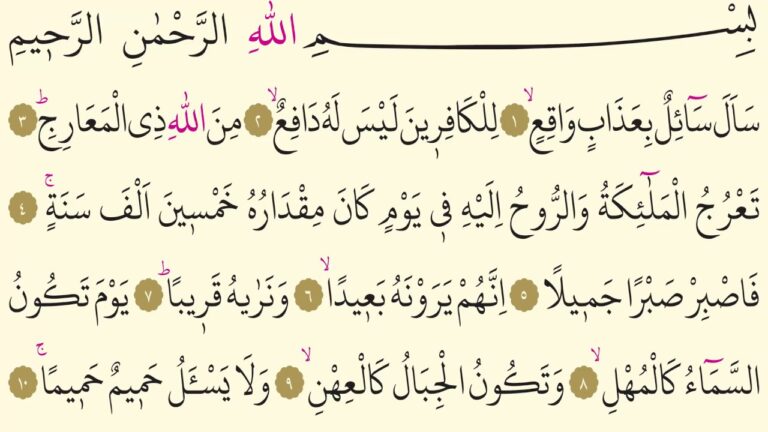 بِسْمِ اللهِ الرَّحْمٰنِ الرَّحٖيمِ
سَاَلَ سَٓائِلٌ بِعَذَابٍ وَاقِعٍۙ ﴿١﴾ لِلْكَافِرٖينَ لَيْسَ لَهُ دَافِعٌۙ ﴿٢﴾ مِنَ اللهِ ذِى الْمَعَارِجِؕ ﴿٣﴾
تَعْرُجُ الْمَلٰٓئِكَةُ وَالرُّوحُ اِلَيْهِ فٖى يَوْمٍ كَانَ مِقْدَارُهُ خَمْسٖينَ اَلْفَ سَنَةٍۚ ﴿٤﴾
فَاصْبِرْ صَبْرًا جَمٖيلًا ﴿٥﴾ اِنَّهُمْ يَرَوْنَهُ بَعٖيدًاۙ ﴿٦﴾ وَنَرٰيهُ قَرٖيبًاؕ ﴿٧﴾ يَوْمَ تَكُونُ
السَّمَٓاءُ كَالْمُهْلِۙ ﴿٨﴾ وَتَكُونُ الْجِبَالُ كَالْعِهْنِۙ ﴿٩﴾ وَلَا يَسْـَٔلُ حَمٖيمٌ حَمٖيمًاۚ ﴿١٠﴾